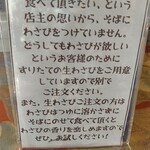 食べて頂きたい、という
店主の思いから、そばに
わさびをつけていません。
どうしてもわさびが欲しい
というお客様のために
すりたての生わさびをご用意
していますので別で
ご注文ください。
また、生わさびご注文の方は
わさびはつゆに溶かさずに
そばにのせて食べて頂くと
わさびの香りを楽しめますので
ぜひ、お試しください!